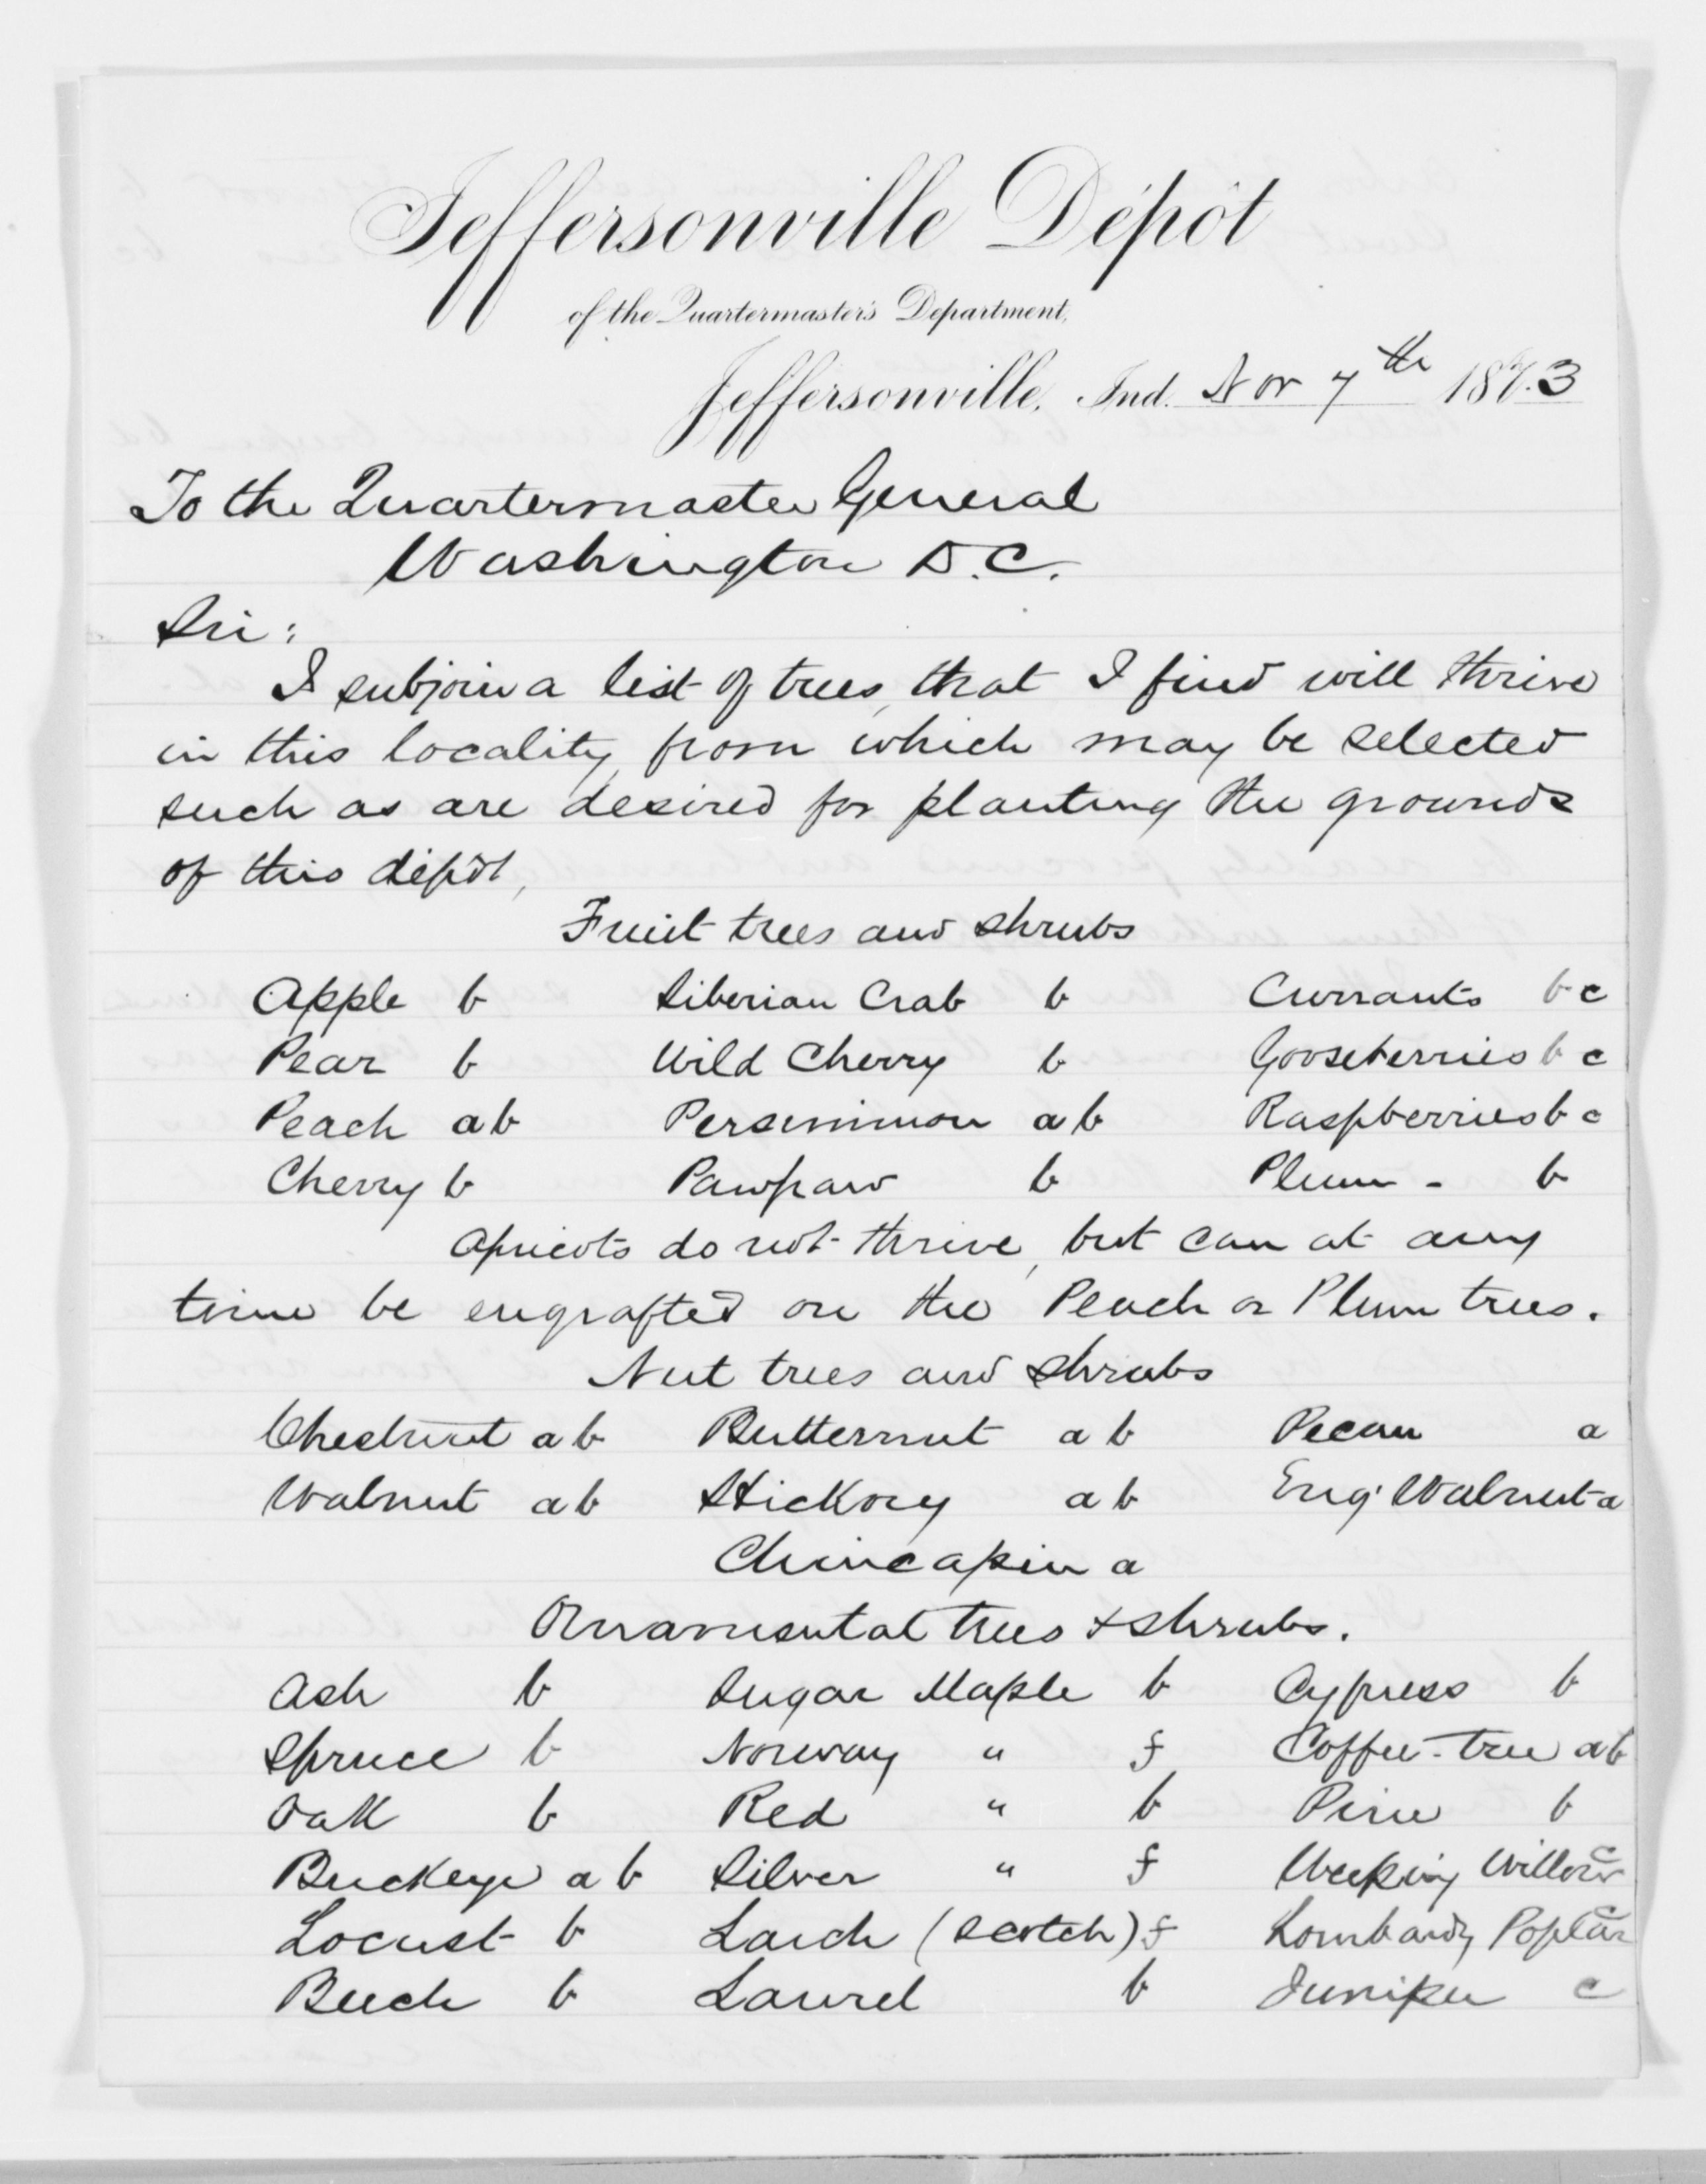 Jeffersonville Dépôt
of the Quartermaster's Department,
Jeffersonville, Ind. Nov 7th 1873
To the Quartermaster General
Washington D.C.
Sir:
I subjoin a list of trees, that I find will thrive
in this locality, from which may be selected
such as are desired for planting the grounds
of this dépôt,
Fruit trees and shrubs
Apple b Siberian Crab b Currants b c
Pear b Wild Cherry b Gooseberries b c
Peach a b Persimmon a b Raspberries b c
Cherry b Pawpaw b Plum - b
Apricots do not thrive, but can at any
time be engrafted on the Peach or Plum trees.
Nut trees and shrubs
Chestnut a b Butternut a b Pecan a
Walnut a b Hickory a b Eng. Walnut a
Chincapin a
Ornamental trees & shrubs.
Ash b Sugar Maple b Cypress b
Spruce b Norway " f Coffee-tree a b
Oak b Red " b Pine b
Buckeye a b Silver " f Weeping Willow c
Locust b Larch (Scotch) f Lombardy Poplar c
Beech b Laurel b Juniper c